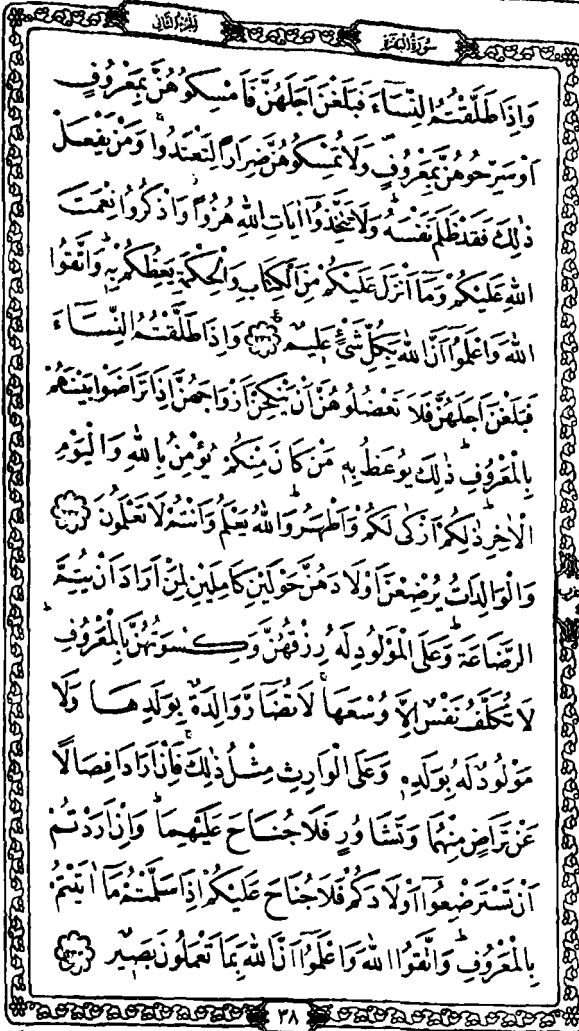 الجزء الثاني
سورة البقرة
وَاِذَا طَلَّقْتُمُ النِّسَٓاءَ فَبَلَغْنَ اَجَلَهُنَّ فَاَمْسِكُوهُنَّ بِمَعْرُوفٍ
اَوْ سَرِّحُوهُنَّ بِمَعْرُوفٍ وَلَا تُمْسِكُوهُنَّ ضِرَارًا لِتَعْتَدُوا وَمَنْ يَفْعَلْ
ذٰلِكَ فَقَدْ ظَلَمَ نَفْسَهُ وَلَا تَتَّخِذُٓوا اٰيَاتِ اللّٰهِ هُزُوًا وَاذْكُرُوا نِعْمَتَ
اللّٰهِ عَلَيْكُمْ وَمَٓا اَنْزَلَ عَلَيْكُمْ مِنَ الْكِتَابِ وَالْحِكْمَةِ يَعِظُكُمْ بِهٖ وَاتَّقُوا
اللّٰهَ وَاعْلَمُٓوا اَنَّ اللّٰهَ بِكُلِّ شَيْءٍ عَلِيمٌ ﴿٢٣١﴾ وَاِذَا طَلَّقْتُمُ النِّسَٓاءَ
فَبَلَغْنَ اَجَلَهُنَّ فَلَا تَعْضُلُوهُنَّ اَنْ يَنْكِحْنَ اَزْوَاجَهُنَّ اِذَا تَرَاضَوْا بَيْنَهُمْ
بِالْمَعْرُوفِ ذٰلِكَ يُوعَظُ بِهٖ مَنْ كَانَ مِنْكُمْ يُؤْمِنُ بِاللّٰهِ وَالْيَوْمِ
الْاٰخِرِ ذٰلِكُمْ اَزْكٰى لَكُمْ وَاَطْهَرُ وَاللّٰهُ يَعْلَمُ وَاَنْتُمْ لَا تَعْلَمُونَ ﴿٢٣٢﴾
وَالْوَالِدَاتُ يُرْضِعْنَ اَوْلَادَهُنَّ حَوْلَيْنِ كَامِلَيْنِ لِمَنْ اَرَادَ اَنْ يُتِمَّ
الرَّضَاعَةَ وَعَلَى الْمَوْلُودِ لَهُ رِزْقُهُنَّ وَكِسْوَتُهُنَّ بِالْمَعْرُوفِ
لَا تُكَلَّفُ نَفْسٌ اِلَّا وُسْعَهَا لَا تُضَٓارَّ وَالِدَةٌ بِوَلَدِهَا وَلَا
مَوْلُودٌ لَهُ بِوَلَدِهٖ وَعَلَى الْوَارِثِ مِثْلُ ذٰلِكَ فَاِنْ اَرَادَا فِصَالًا
عَنْ تَرَاضٍ مِنْهُمَا وَتَشَاوُرٍ فَلَا جُنَاحَ عَلَيْهِمَا وَاِنْ اَرَدْتُمْ
اَنْ تَسْتَرْضِعُٓوا اَوْلَادَكُمْ فَلَا جُنَاحَ عَلَيْكُمْ اِذَا سَلَّمْتُمْ مَٓا اٰتَيْتُمْ
بِالْمَعْرُوفِ وَاتَّقُوا اللّٰهَ وَاعْلَمُٓوا اَنَّ اللّٰهَ بِمَا تَعْمَلُونَ بَصِيرٌ ﴿٢٣٣﴾
٣٨